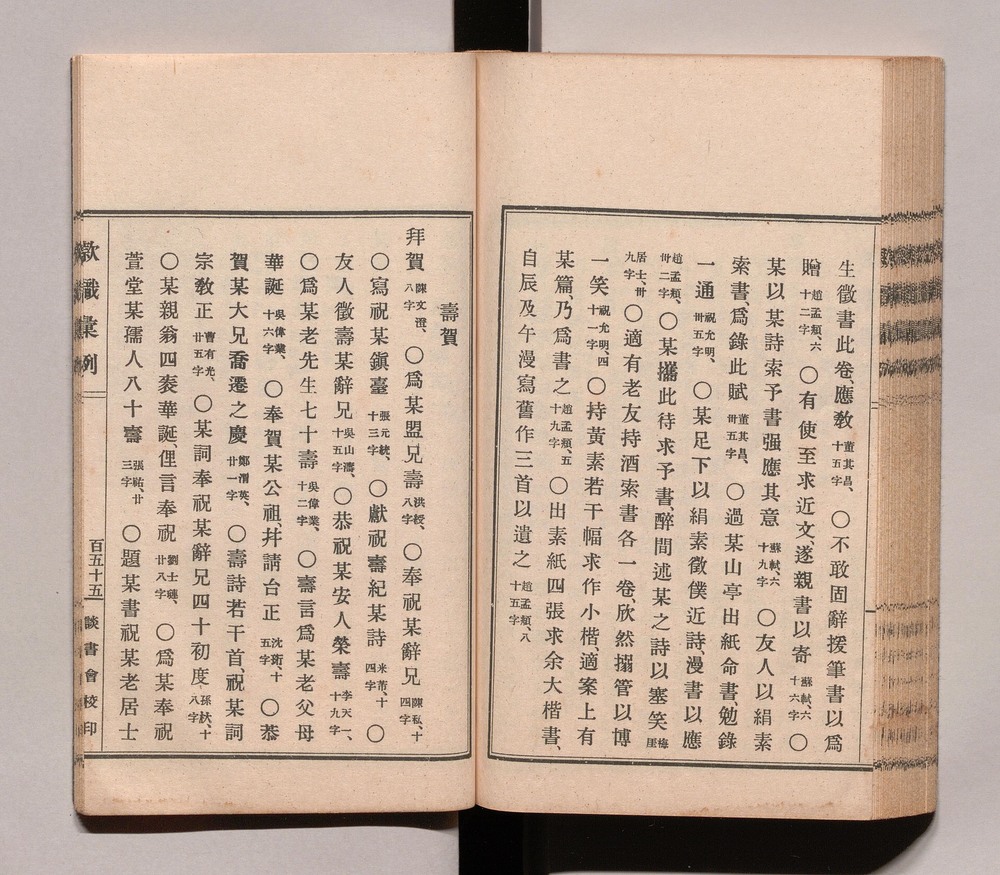 生徵書此卷、應敎 董其昌、十五字 ○不敢固辭援筆書以爲
贈 趙孟頫、六十二字 ○有使至求近文、遂親書以寄 蘇軾、六十六字 ○
某以某詩索予書强應其意 蘇軾、六十九字 ○友人以絹素
索書、爲錄此賦 董其昌、卌五字 ○過某山亭出紙命書、勉錄
一通 祝允明、卌五字 ○某足下以絹素徵僕近詩、漫書以應
趙孟頫、卌二字 ○某攜此待求予書、醉間述某之詩以塞笑 梅厓
居士、卌九字 ○適有老友持酒索書各一卷、欣然搦管以博
一笑 祝允明、四十一字 ○持黃素若干幅求作小楷、適案上有
某篇、乃爲書之 趙孟頫、五十九字 ○出素紙四張求余大楷書、
自辰及午漫寫舊作三首以遺之 趙孟頫、八十五字
壽賀
拜賀 陳文 八字 ○爲某盟兄壽 洪 八字 ○奉祝某辭兄 陳 十四字
○寫祝某鎭臺 張元統、十三字 ○獻祝壽紀某詩 米芾、十四字 ○
友人徵壽某辭兄 吳山濤、十五字 ○恭祝某安人榮壽 李天一、十九字
○爲某老先生七十壽 吳偉業、十二字 ○壽言爲某老父母
華誕 吳偉業、十六字 ○奉賀某公祖、幷請台正 沈 十五字 ○恭
賀某大兄喬遷之慶 鄭 英、廿一字 ○壽詩若干首、祝某詞
宗敎正 曹有光、廿五字 ○某詞奉祝某辭兄四十初度 孫 十八字
○某親翁四袠華誕、俚言奉祝 劉士 廿八字 ○爲某奉祝
萱堂某孺人八十壽 張 廿三字 ○題某書祝某老居士
款識彙例
百五十五
談書會校印